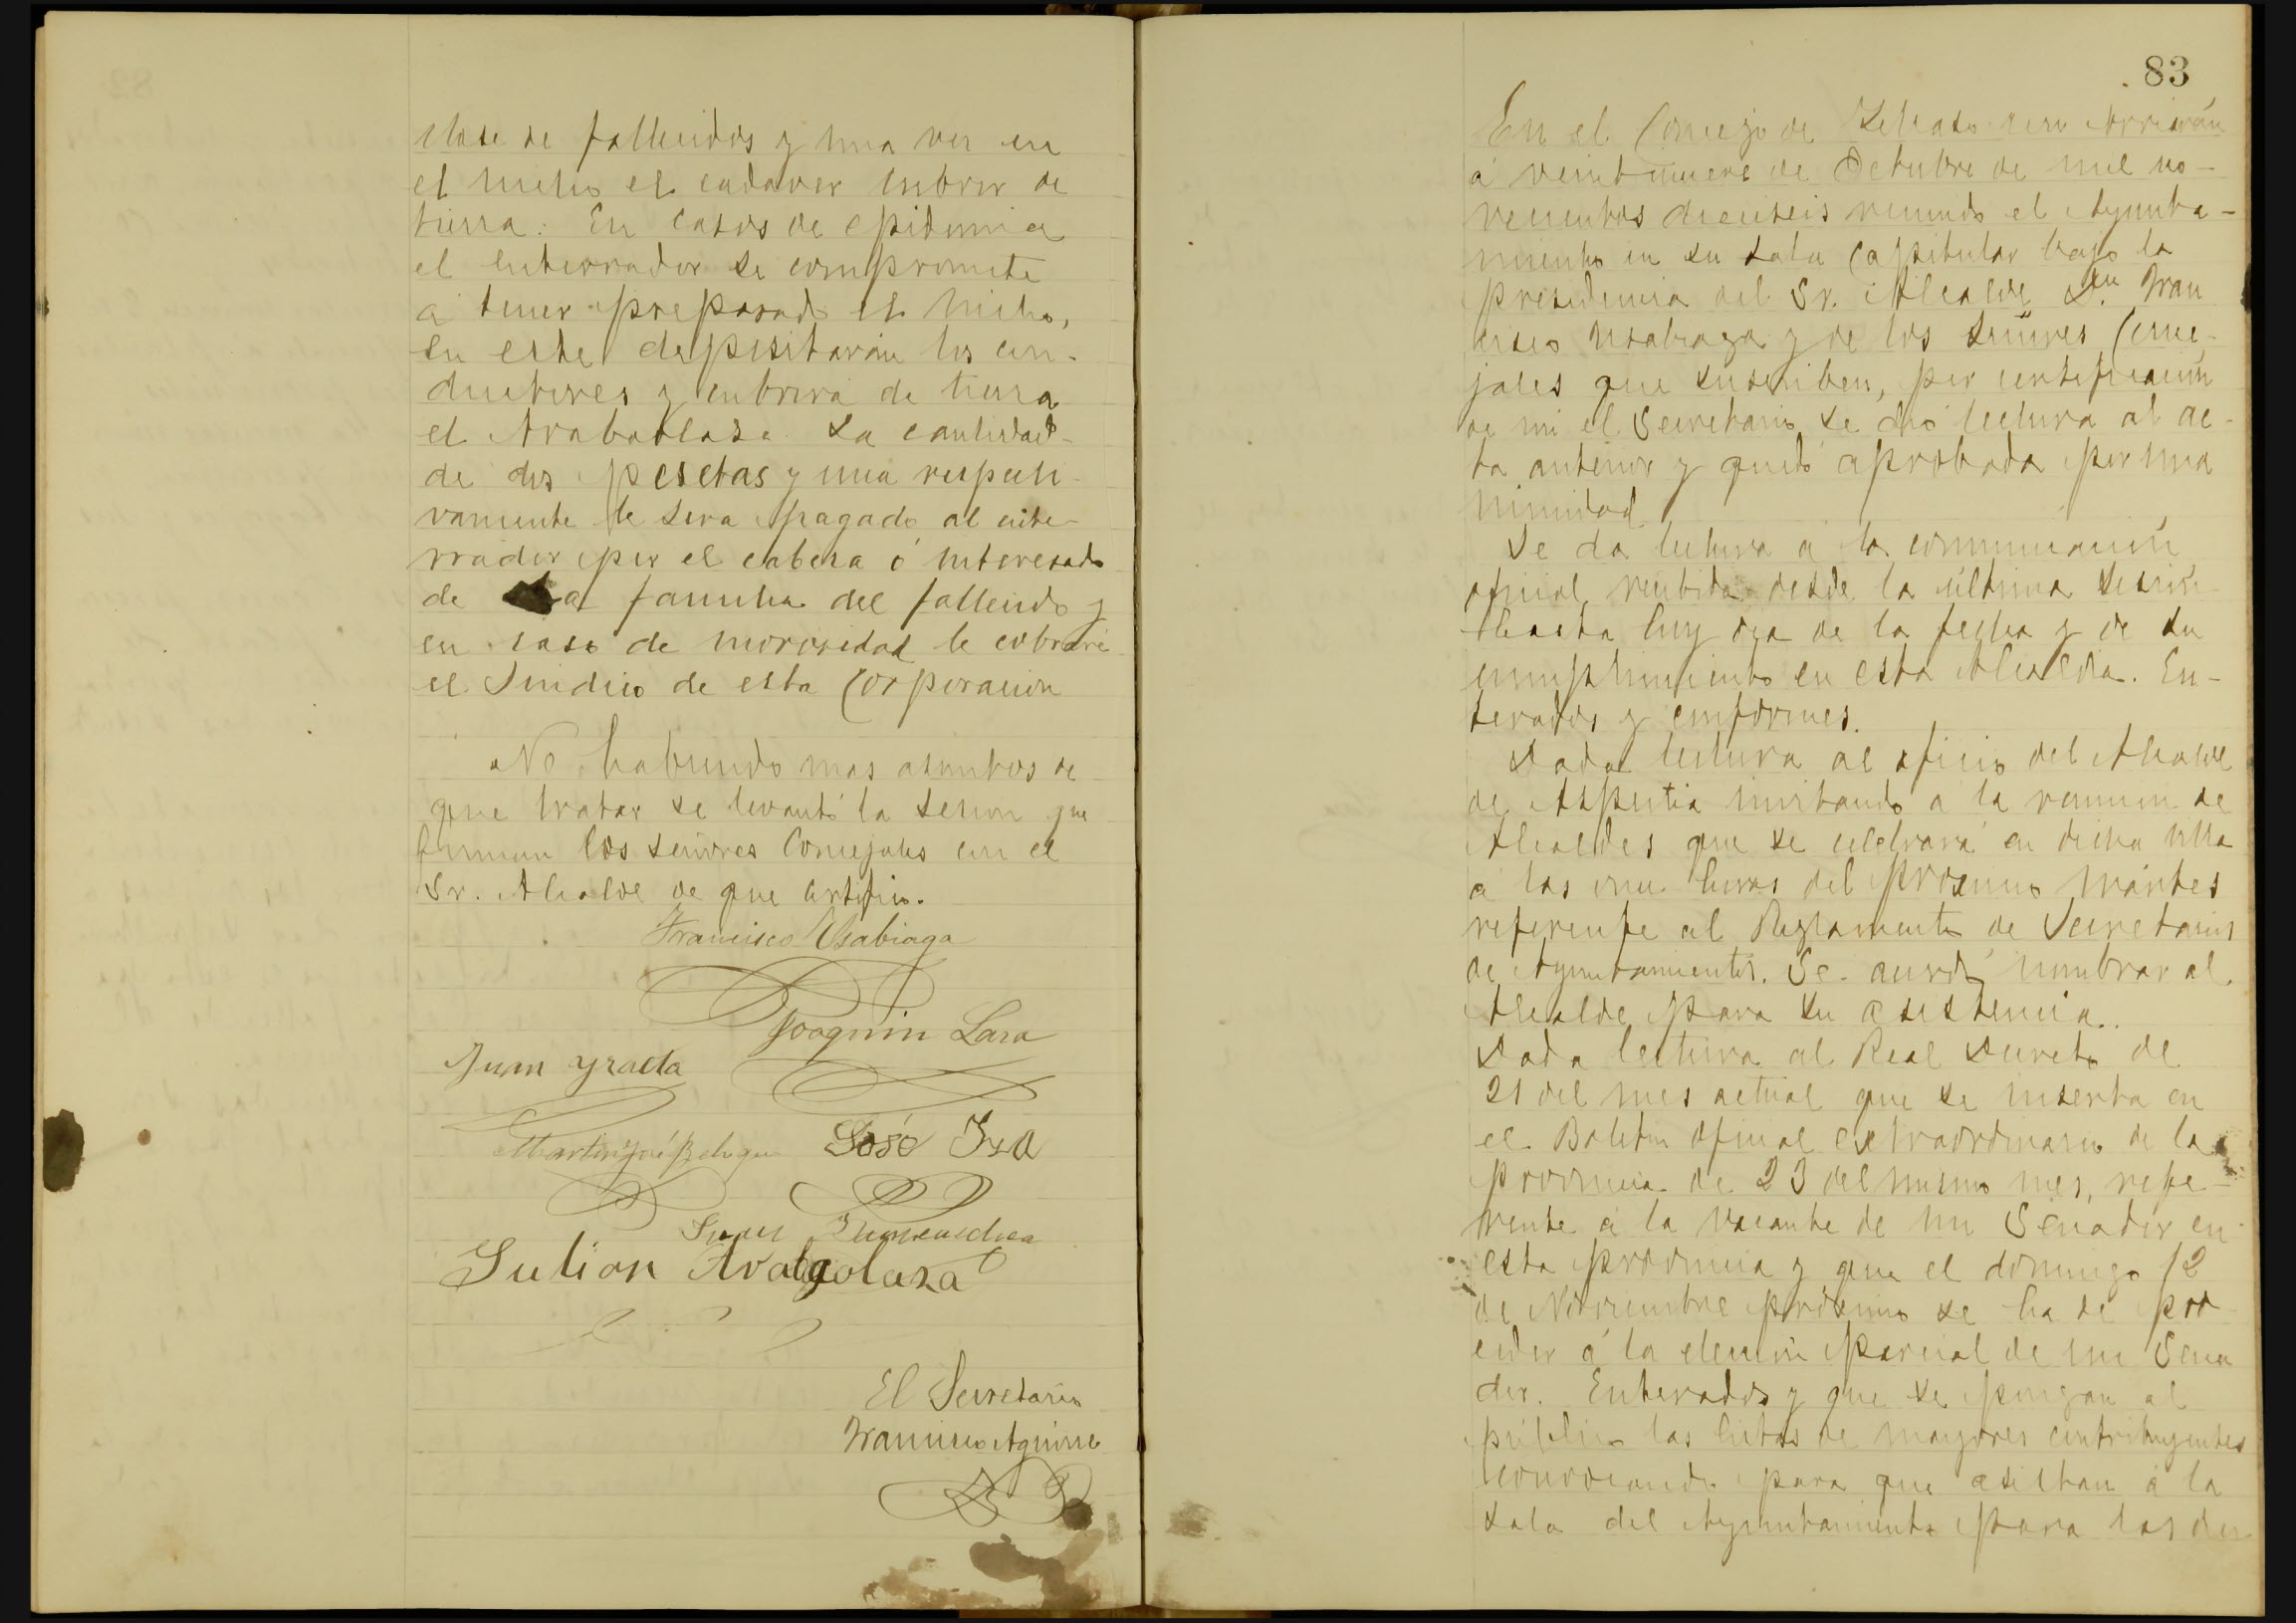 clase de fallecidos y una vez en
el nicho el cadaver cubrir de
tierra. En casos de epidemia
el enterrador se compromete
a tener preparado el nicho,
en este depositarán los con-
ductores y cubrirá de tierra
el Arabaolaza. La cantidad
de dos pesetas y una respecti-
vamente le sera pagado al ente-
rrador por el cabeza ó interesado
de la familia del fallecido y
en caso de morosidad le cobrará
el Sindico de esta Corporacion
No habiendo mas asuntos de
que tratar se levantó la sesion que
firman los señores Concejales con el
Sr. Alcalde de que certifico.
Francisco Usabiaga
Joaquin Lara
Juan Yraeta
Martin José José Yza
Juan
Julian Arabaolaza
El Secretario
Francisco Aguirre
83
En el Concejo de
á veintinueve de Octubre de mil no-
vecientos dieciseis reunido el Ayunta-
miento en su Sala Capitular bajo la
presidencia del Sr. Alcalde Dn. Fran
cisco Usabiaga y de los Señores Conce-
jales que suscriben, por certificación
de mi el Secretario se dió lectura al ac-
ta anterior y quedó aprobada por una
nimidad
Se da lectura a la comunicación
oficial recibida desde la última sesión
hasta hoy dia de la fecha y de su
cumplimiento en esta Alcaldia. En-
terados y conformes.
Dada lectura al oficio del Alcalde
de Azpeitia invitando a la reunion de
Alcaldes que se celebrará en dicha villa
a las once horas del proximo mártes
referente al Reglamento de Secretarios
de Ayuntamientos. Se acordó nombrar al
Alcalde para su asistencia.
Dada lectura al Real Decreto de
21 del mes actual que se inserta en
el Boletin oficial extraordinario de la
provincia de 23 del mismo mes, refe-
rente á la vacante de un Senador en
esta provincia y que el domingo 12
de Noviembre próximo se ha de pro
ceder á la elección parcial de un Sena
dor. Enterados y que se pongan al
público las listas de mayores contribuyentes
convocando para que asistan á la
Sala del Ayuntamiento para las diez